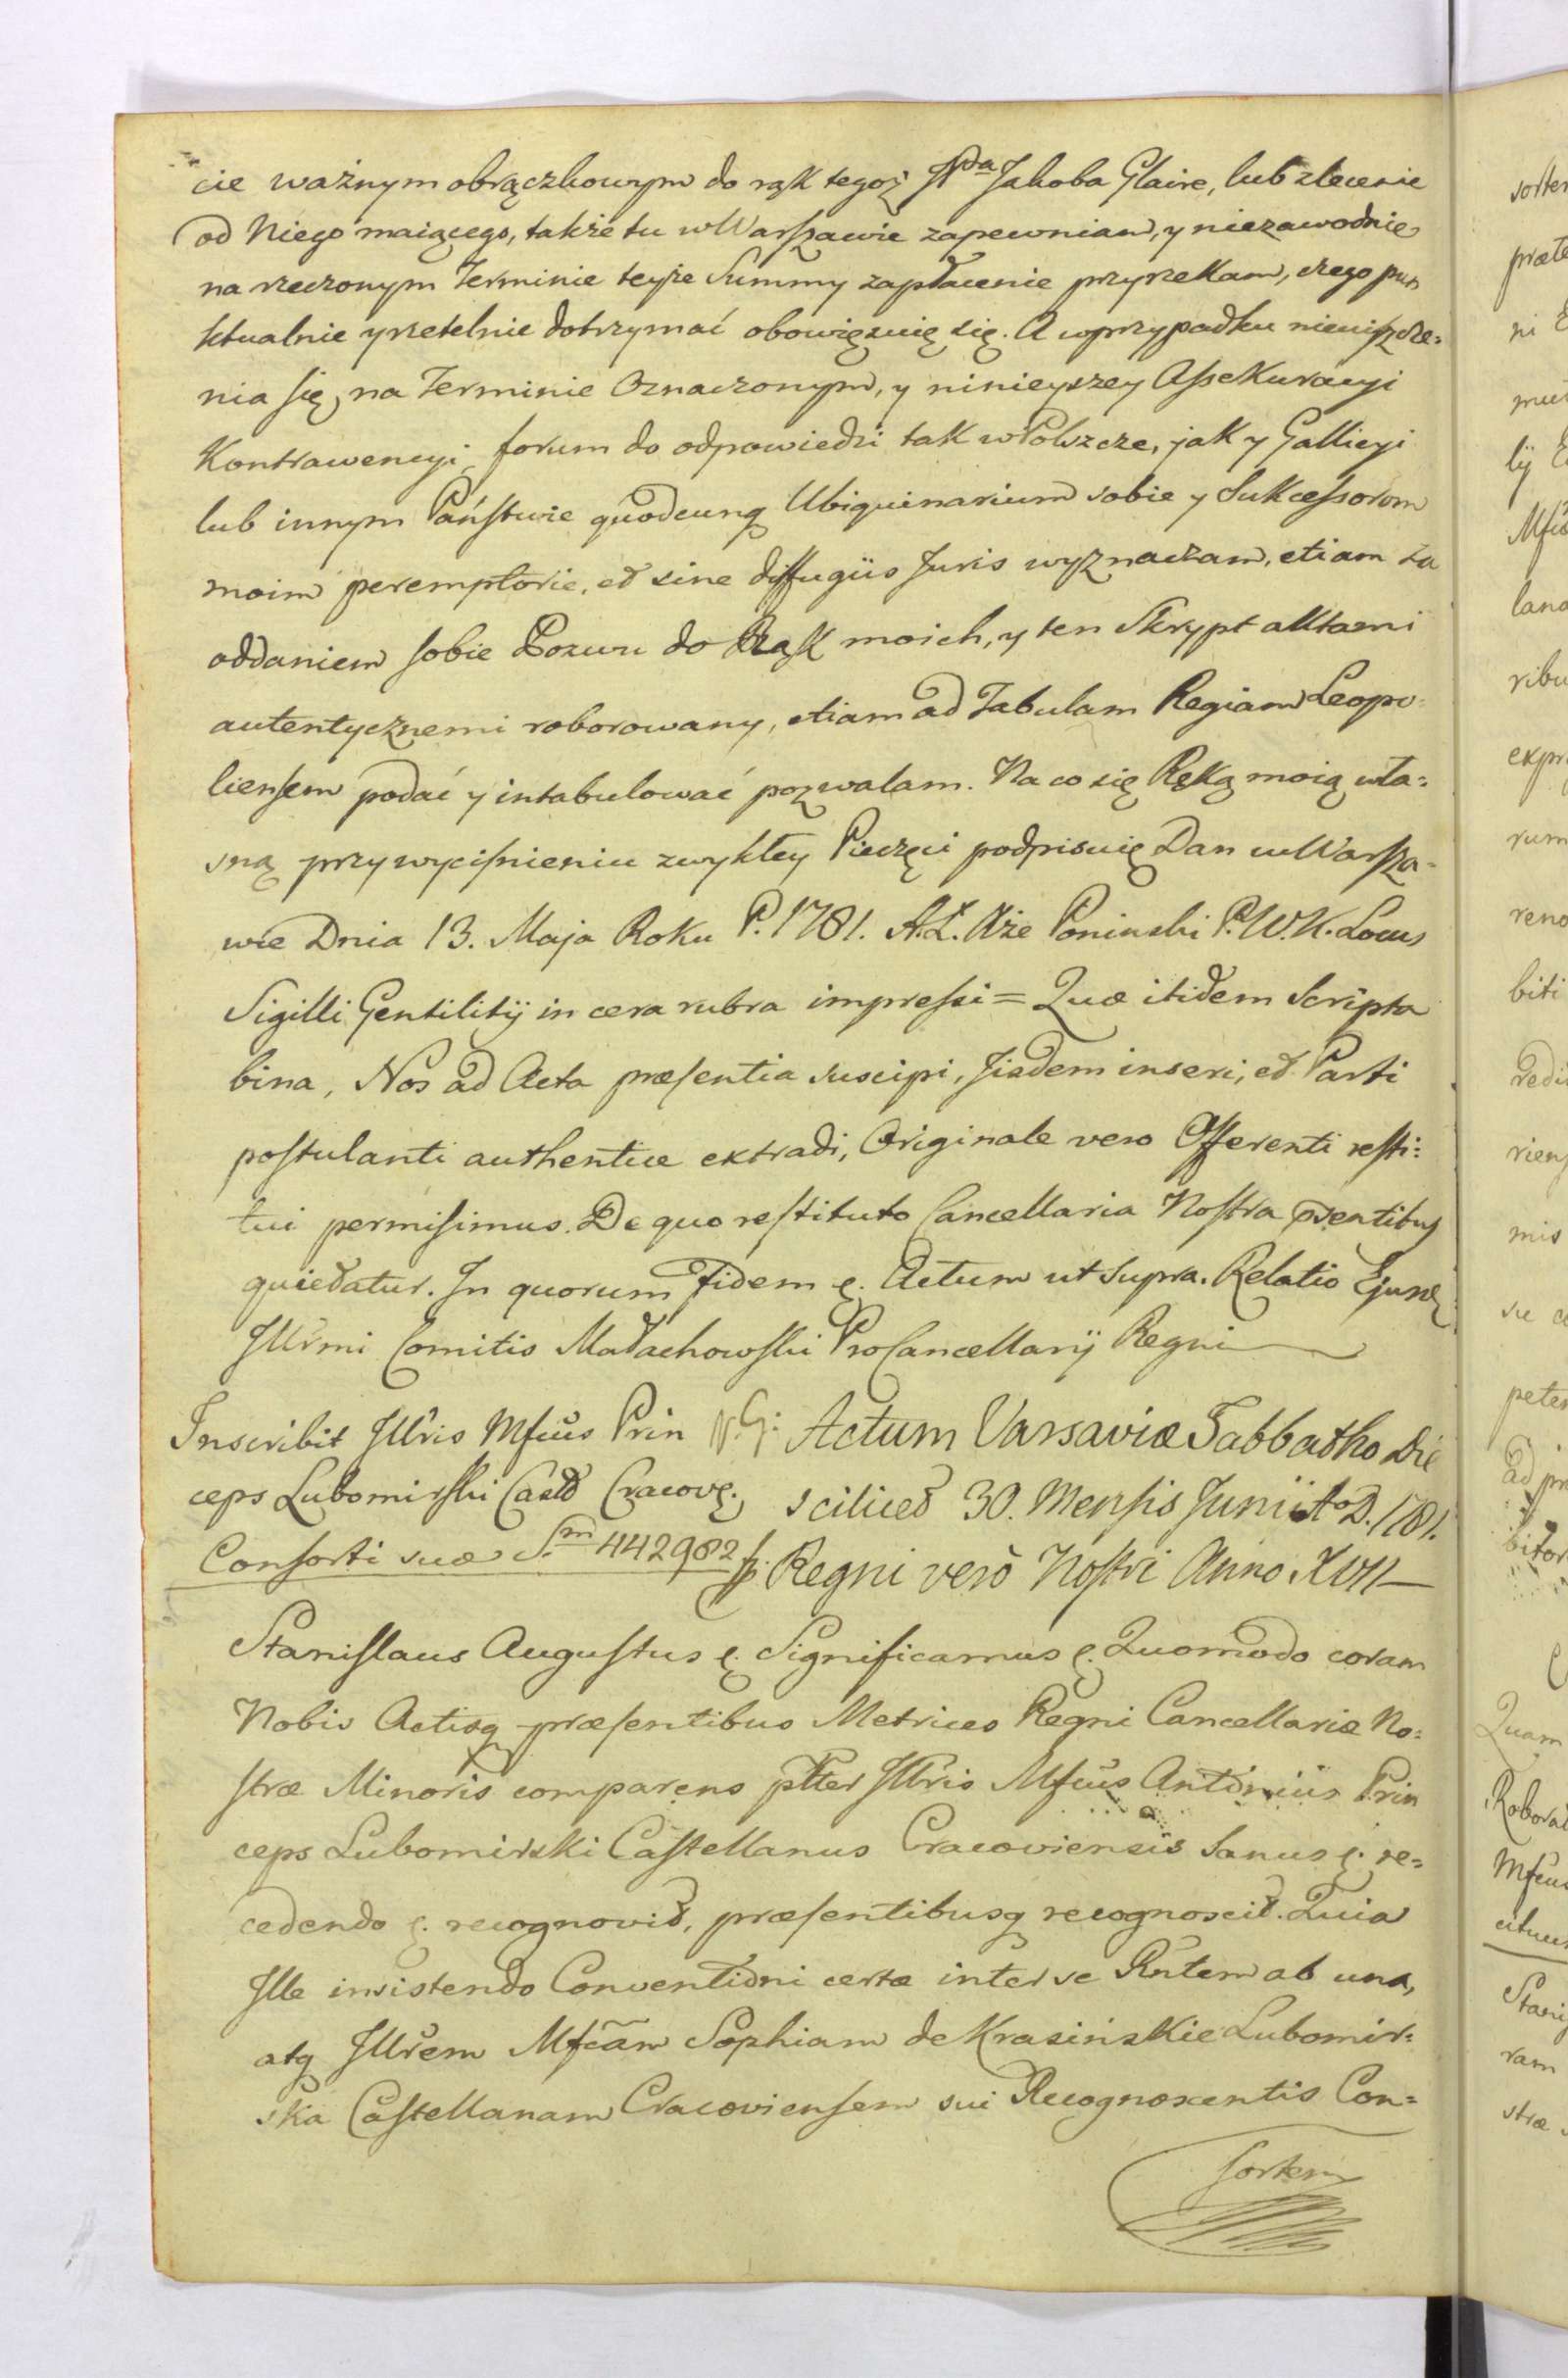 cie ważnym obrączkowym do rąk tegoż JPda Jakoba Glaire, lub zlecenie
od Niego maiącego, także tu w Warszawie zapewniam, y niezawodnie
na rzeczonym Terminie teyże Summy zapłacenie przyrzekam, czego pun
ktualnie y rzetelnie dotrzymać obowięzuię się. A w przypadku nieuiszcze=
nia się na Terminie Oznaczonym, y ninieyszey Assekuracyi
Kontrawencyi, forum do odpowiedzi tak w Polszcze, jak y Gallicyi
lub innym Państwie quodcunq Ubiquinarium sobie y Sukcessorom
moim peremptorie, et sine diffugiis Juris wyznaczam, etiam za
oddaniem sobie Pozwu do Rąk moich, y ten Skrypt aktami
autentycznemi roborowany, etiam ad Tabulam Regiam Leopo=
liensem podać y intabulować pozwalam. Na co się Ręką moią wła=
sną przy wyciśnieniu zwykłey Pieczęci podpisuię Dan w Warsza=
wie Dnia 13. Maja Roku P. 1781. A. Ł. Xże Poninski P. W. K. Locus
Sigilli Gentilitij in cera rubra impressi = Quæ itidem Scripta
bina, Nos ad Acta præsentia suscipi, Jisdem inseri, et Parti
postulanti authentice extradi, Originale vero Offerenti resti=
tui permisimus. De quo restituto Cancellaria Nostra pñsentibus
quietatur. In quorum Fidem ę. Actum ut supra. Relatio Ejusd
Jllr̃mi Comitis Małachowski ProCancellarij Regni
Inscribit Jllr̃is Mfcũs Prin
ceps Lubomirski Castl Cracovę.
Consorti suæ S.m 442982 fp.
N. G: Actum Varsaviæ Sabbatho Die
scilicet 30. Mensis Junii Ao D. 1781.
Regni verò Nostri Anno XVII
Stanislaus Augustus ę. Significamus ę. Quomodo coram
Nobis Actisq præsentibus Metrices Regni Cancellariæ No=
stræ Minoris comparens pltter Jllr̃is Mfcũs Antonius Prin
ceps Lubomirski Castellanus Cracoviensis Sanus ę. re=
cedendo ę. recognovit, præsentibusq recognoscit. Quia
Jlle insistendo Conventioni certæ inter se Rñtem ab una,
atq Jllr̃em Mfcãm Sophiam de Krasińskie Lubomir=
ska Castellanam Cracoviensem sui Recognoscentis Con=
sortem